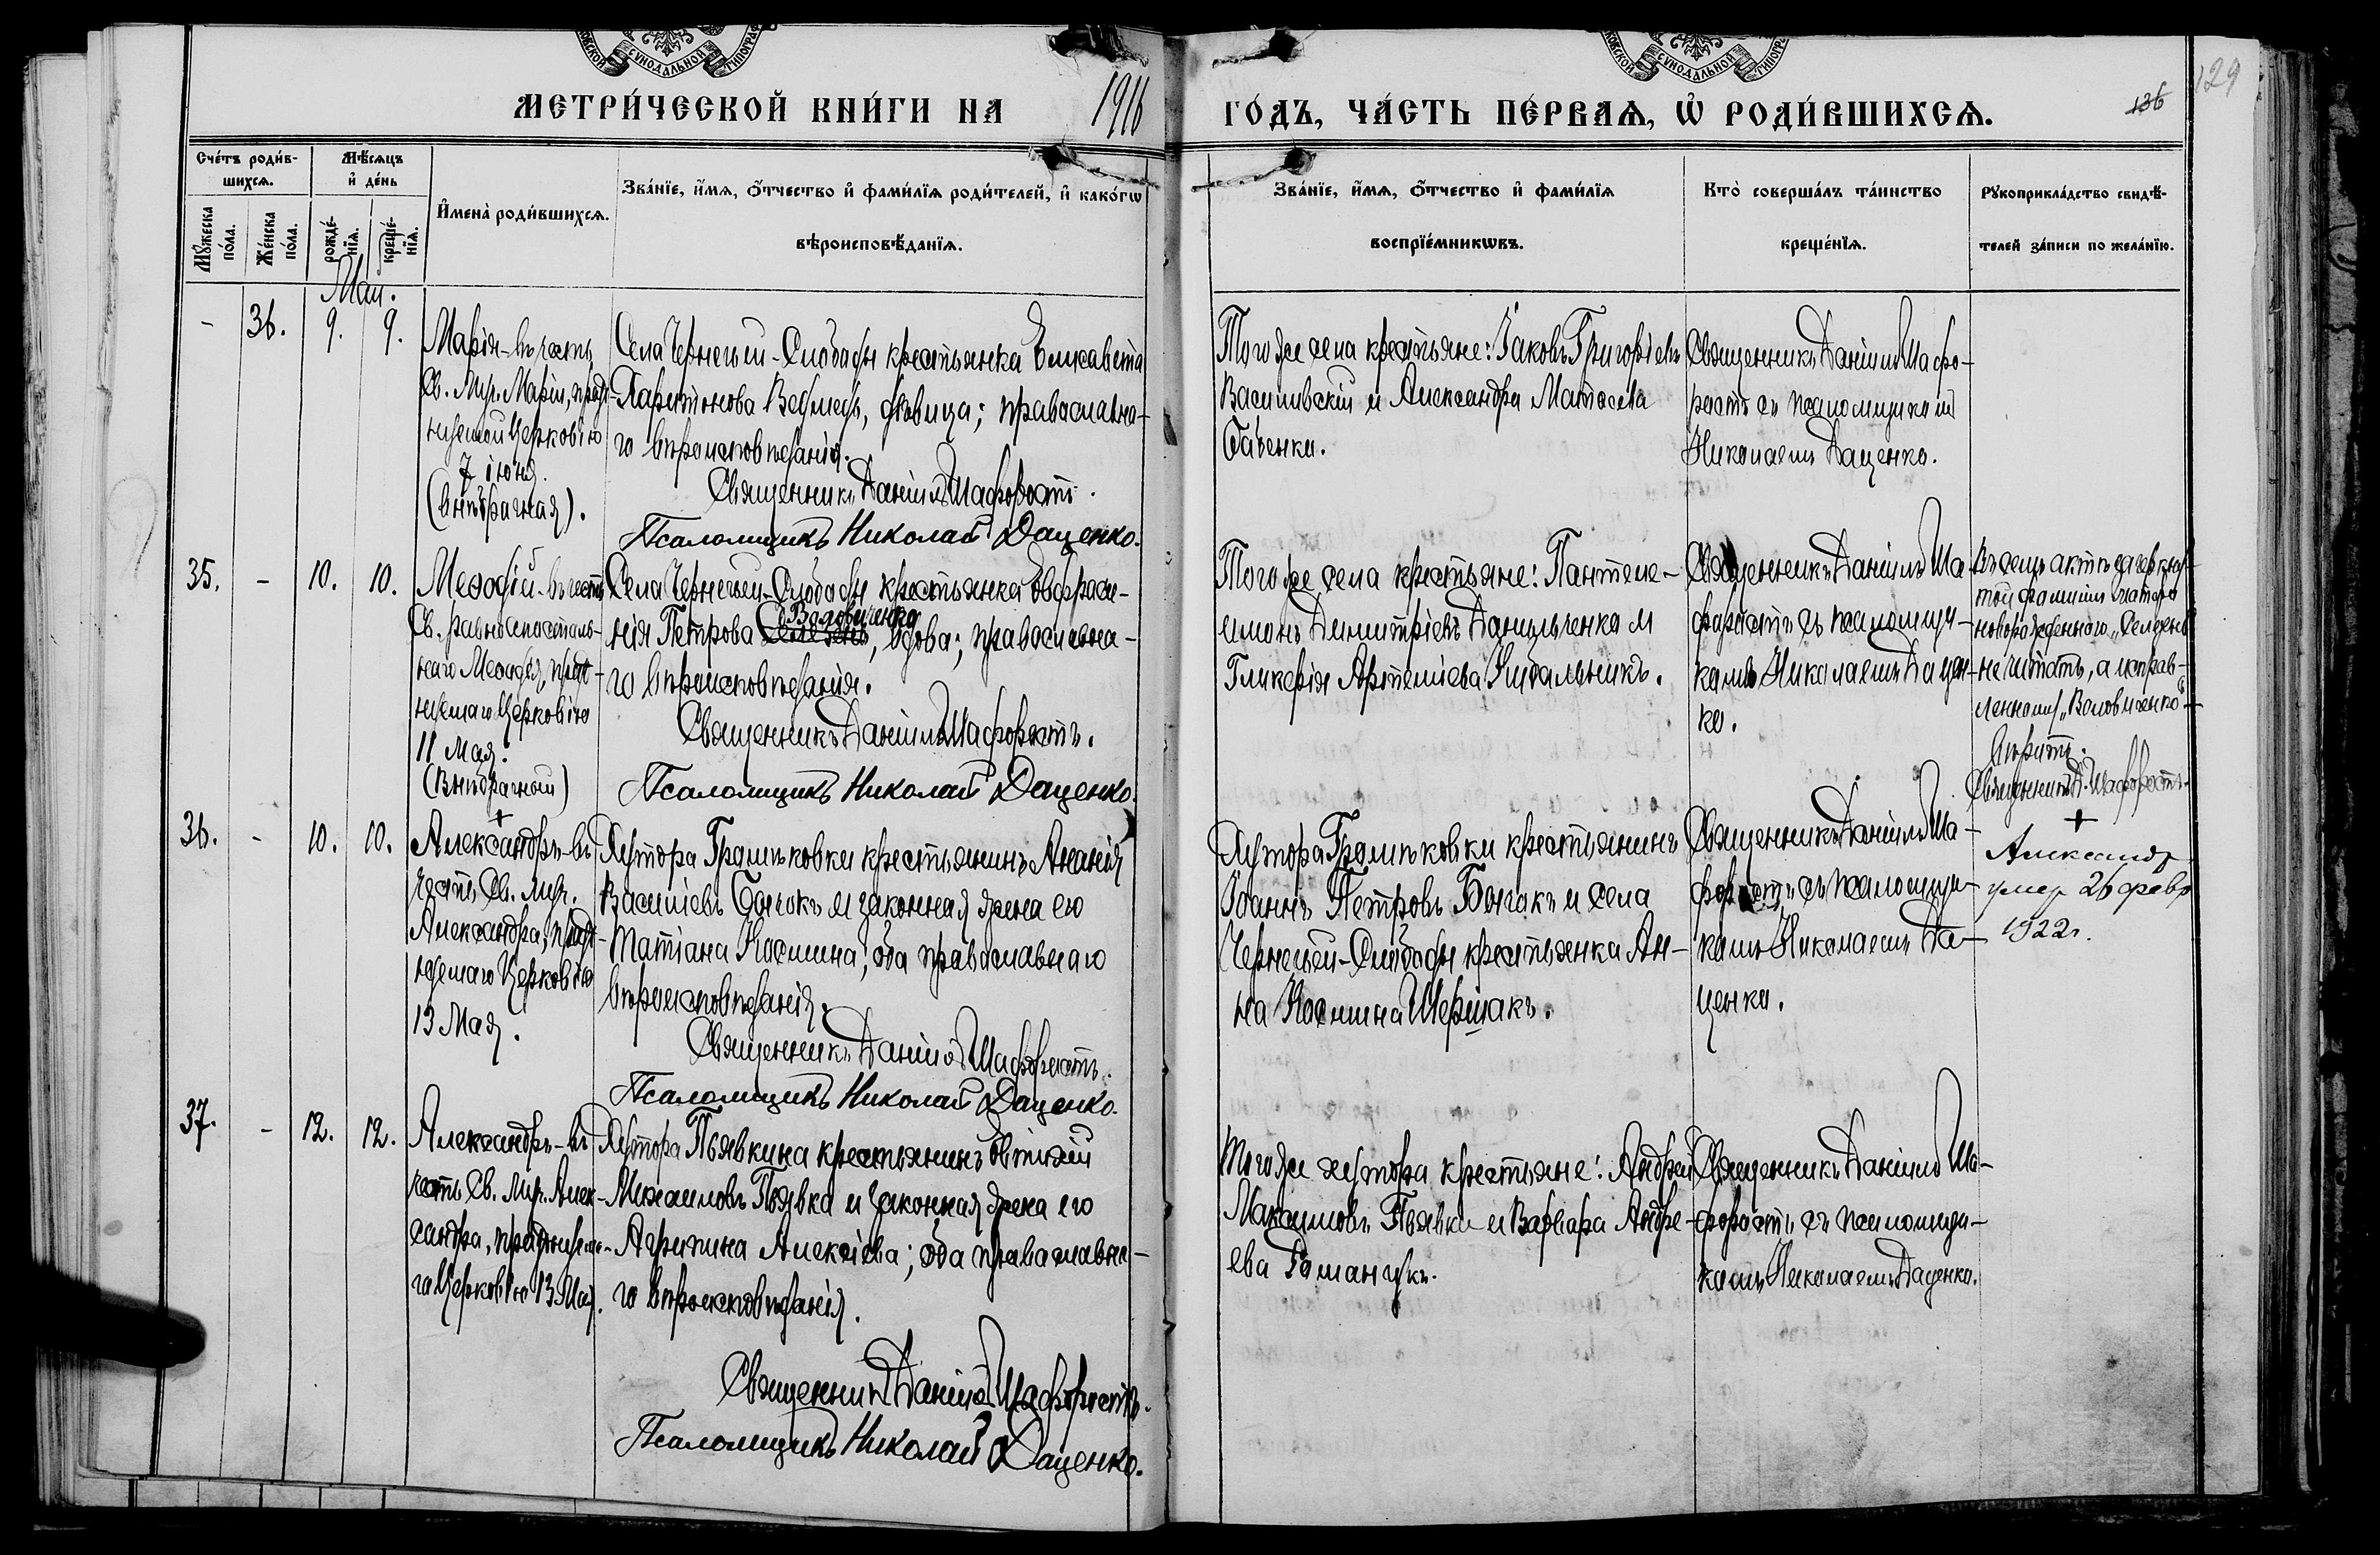 МЕТРИ́ЧЕСКОЙ КНИ́ГИ НА 1916 ГО́ДЪ, ЧА́СТЬ ПЕ́РВАѦ, Ѡ҆ РОДИ́ВШИХСѦ.
136
129
Сче́тъ роди́в-
шихсѧ.
Мꙋ́жеска
по́ла.
Же́нска
по́ла.
Мѣ́сѧцъ
и҆ де́нь
рожде́-
нїѧ.
креще́-
нїѧ.
И҆мена̀ роди́вшихсѧ.
Зва́нїе, и҆́мѧ, ѻ҆́тчество и҆ фами́лїѧ роди́телей, и҆ како́гѡ
вѣроисповѣ́данїѧ.
Зва́нїе, и҆́мѧ, ѻ҆́тчество и҆ фами́лїѧ
воспрїе́мникѡвъ.
Кто̀ соверша́лъ та́инство
креще́нїѧ.
Рꙋкоприкла́дство свидѣ́-
телей за́писи по жела́нїю.
Май.
-
36.
9.
9.
Марія - въ честь
Св. Мук. Маріи, празд-
нуемой Церковію
7 іюня.
(внѣбрачная).
Села Чернечей-Слободы крестьянка Елисавета
Харитонова Ведмедь, дѣвица; православна-
го вѣроисповѣданія.
Священникъ Даніилъ Шафоростъ.
Псаломщикъ Николай Даценко.
Того же села крестьяне: Іаковъ Григоріевъ
Василивскій и Александра Матѳеева
Священникъ Даніилъ Шафо-
ростъ съ псаломщикомъ
Николаемъ Даценко.
35.
-
10.
10.
Меѳодій - въ честь
Св. равноапостоль-
наго Меѳодія, празд-
нуемаго Церковію
11 Мая.
(Внѣбрачный)
Села Чернечей-Слободы крестьянка Евфроси-
Воловиченко
нія Петрова Селезень, вдова; православна-
го вѣроисповѣданія.
Священникъ Даніилъ Шафоростъ.
Псаломщикъ Николай Даценко.
Того же села крестьяне: Пантеле-
имонъ Димитріевъ Данильченко и
Гликерія Артеміева
Священникъ Даніилъ Ша-
форостъ съ псаломщи-
комъ Николаемъ Дацен-
ко.
Въ семъ актѣ зачеркну-
той фамиліи матери
новорожденнаго „Селезень"
не читать, а исправ-
ленному „Воловиченко"
вѣрить.
Священникъ Д. Шафоростъ.
36.
-
10.
10.
+
Александръ - въ
честь Св. Муч.
Александра, празд-
нуемаго Церковію
13 Мая.
Хутора Грамыковки крестьянинъ Ананія
Василіевъ Бычокъ и законная жена его
Татіана Космина; оба православнаго
вѣроисповѣданія.
Священникъ Даніилъ Шафоростъ.
Псаломщикъ Николай Даценко.
Хутора Грамыковки крестьянинъ
Іоаннъ Петровъ Бычокъ и села
Чернечей-Слободы крестьянка Ан-
на Космина Шершакъ.
Священникъ Даніилъ Ша-
форостъ съ псаломщи-
комъ Николаемъ Да-
ценко.
+
Александр
умер 26 февр
1922г.
37.
-
12.
12.
Александръ - въ
честь Св. Муч. Алек-
сандра, празднуема-
го Церковію 13 Мая.
Хутора Пьявкина крестьянинъ Евтихій
Михаиловъ Пьявка и законная жена его
Агрипина Алексіева; оба православна-
го вѣроисповѣданія.
Священникъ Даніилъ Шафоростъ.
Псаломщикъ Николай Даценко.
Того же хутора крестьяне: Андрей
Максимовъ Пьявка и Варвара Андре-
ева Романчукъ.
Священникъ Даніилъ Ша-
форостъ съ псаломщи-
комъ Николаемъ Даценко.